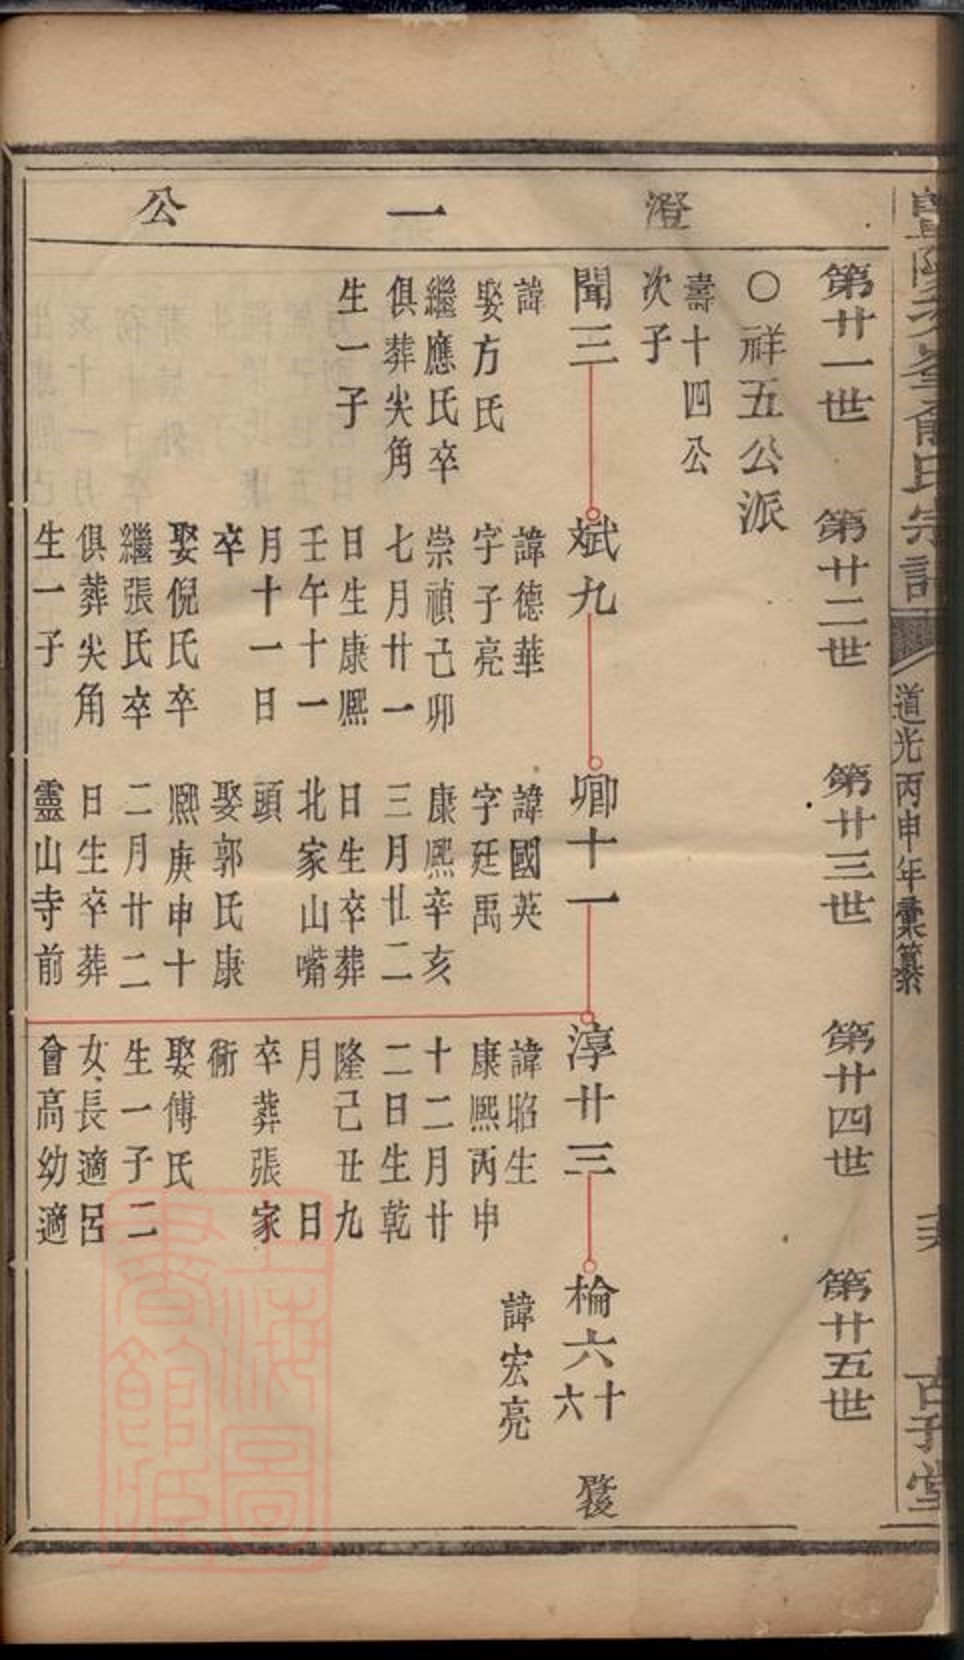 俞氏宗譜
道光丙申年彙纂
澄一公
第廿一世
第廿二世
第廿三世
第廿四世
第廿五世
○祥五公派
壽十四公
次子
聞三
諱
娶方氏
繼應氏卒
俱葬尖角
生一子
斌九
諱德華
字子亮
崇禎己卯
七月廿一
日生康熈
壬午十一
月十一日
卒
娶倪氏卒
繼張氏卒
俱葬尖角
生一子
卿十一
諱國英
字廷禹
康熈辛亥
三月廿二
日生卒葬
北家山嘴
頭
娶郭氏康
熈庚申十
二月廿二
日生卒葬
靈山寺前
淳廿三
諱昭生
康熈丙申
十二月廿
二日生乾
隆己丑九
月 日
卒葬張家
衕
娶傅氏
生一子二
女長適呂
會高幼適
棆六十六
諱宏亮
上海圖書館藏